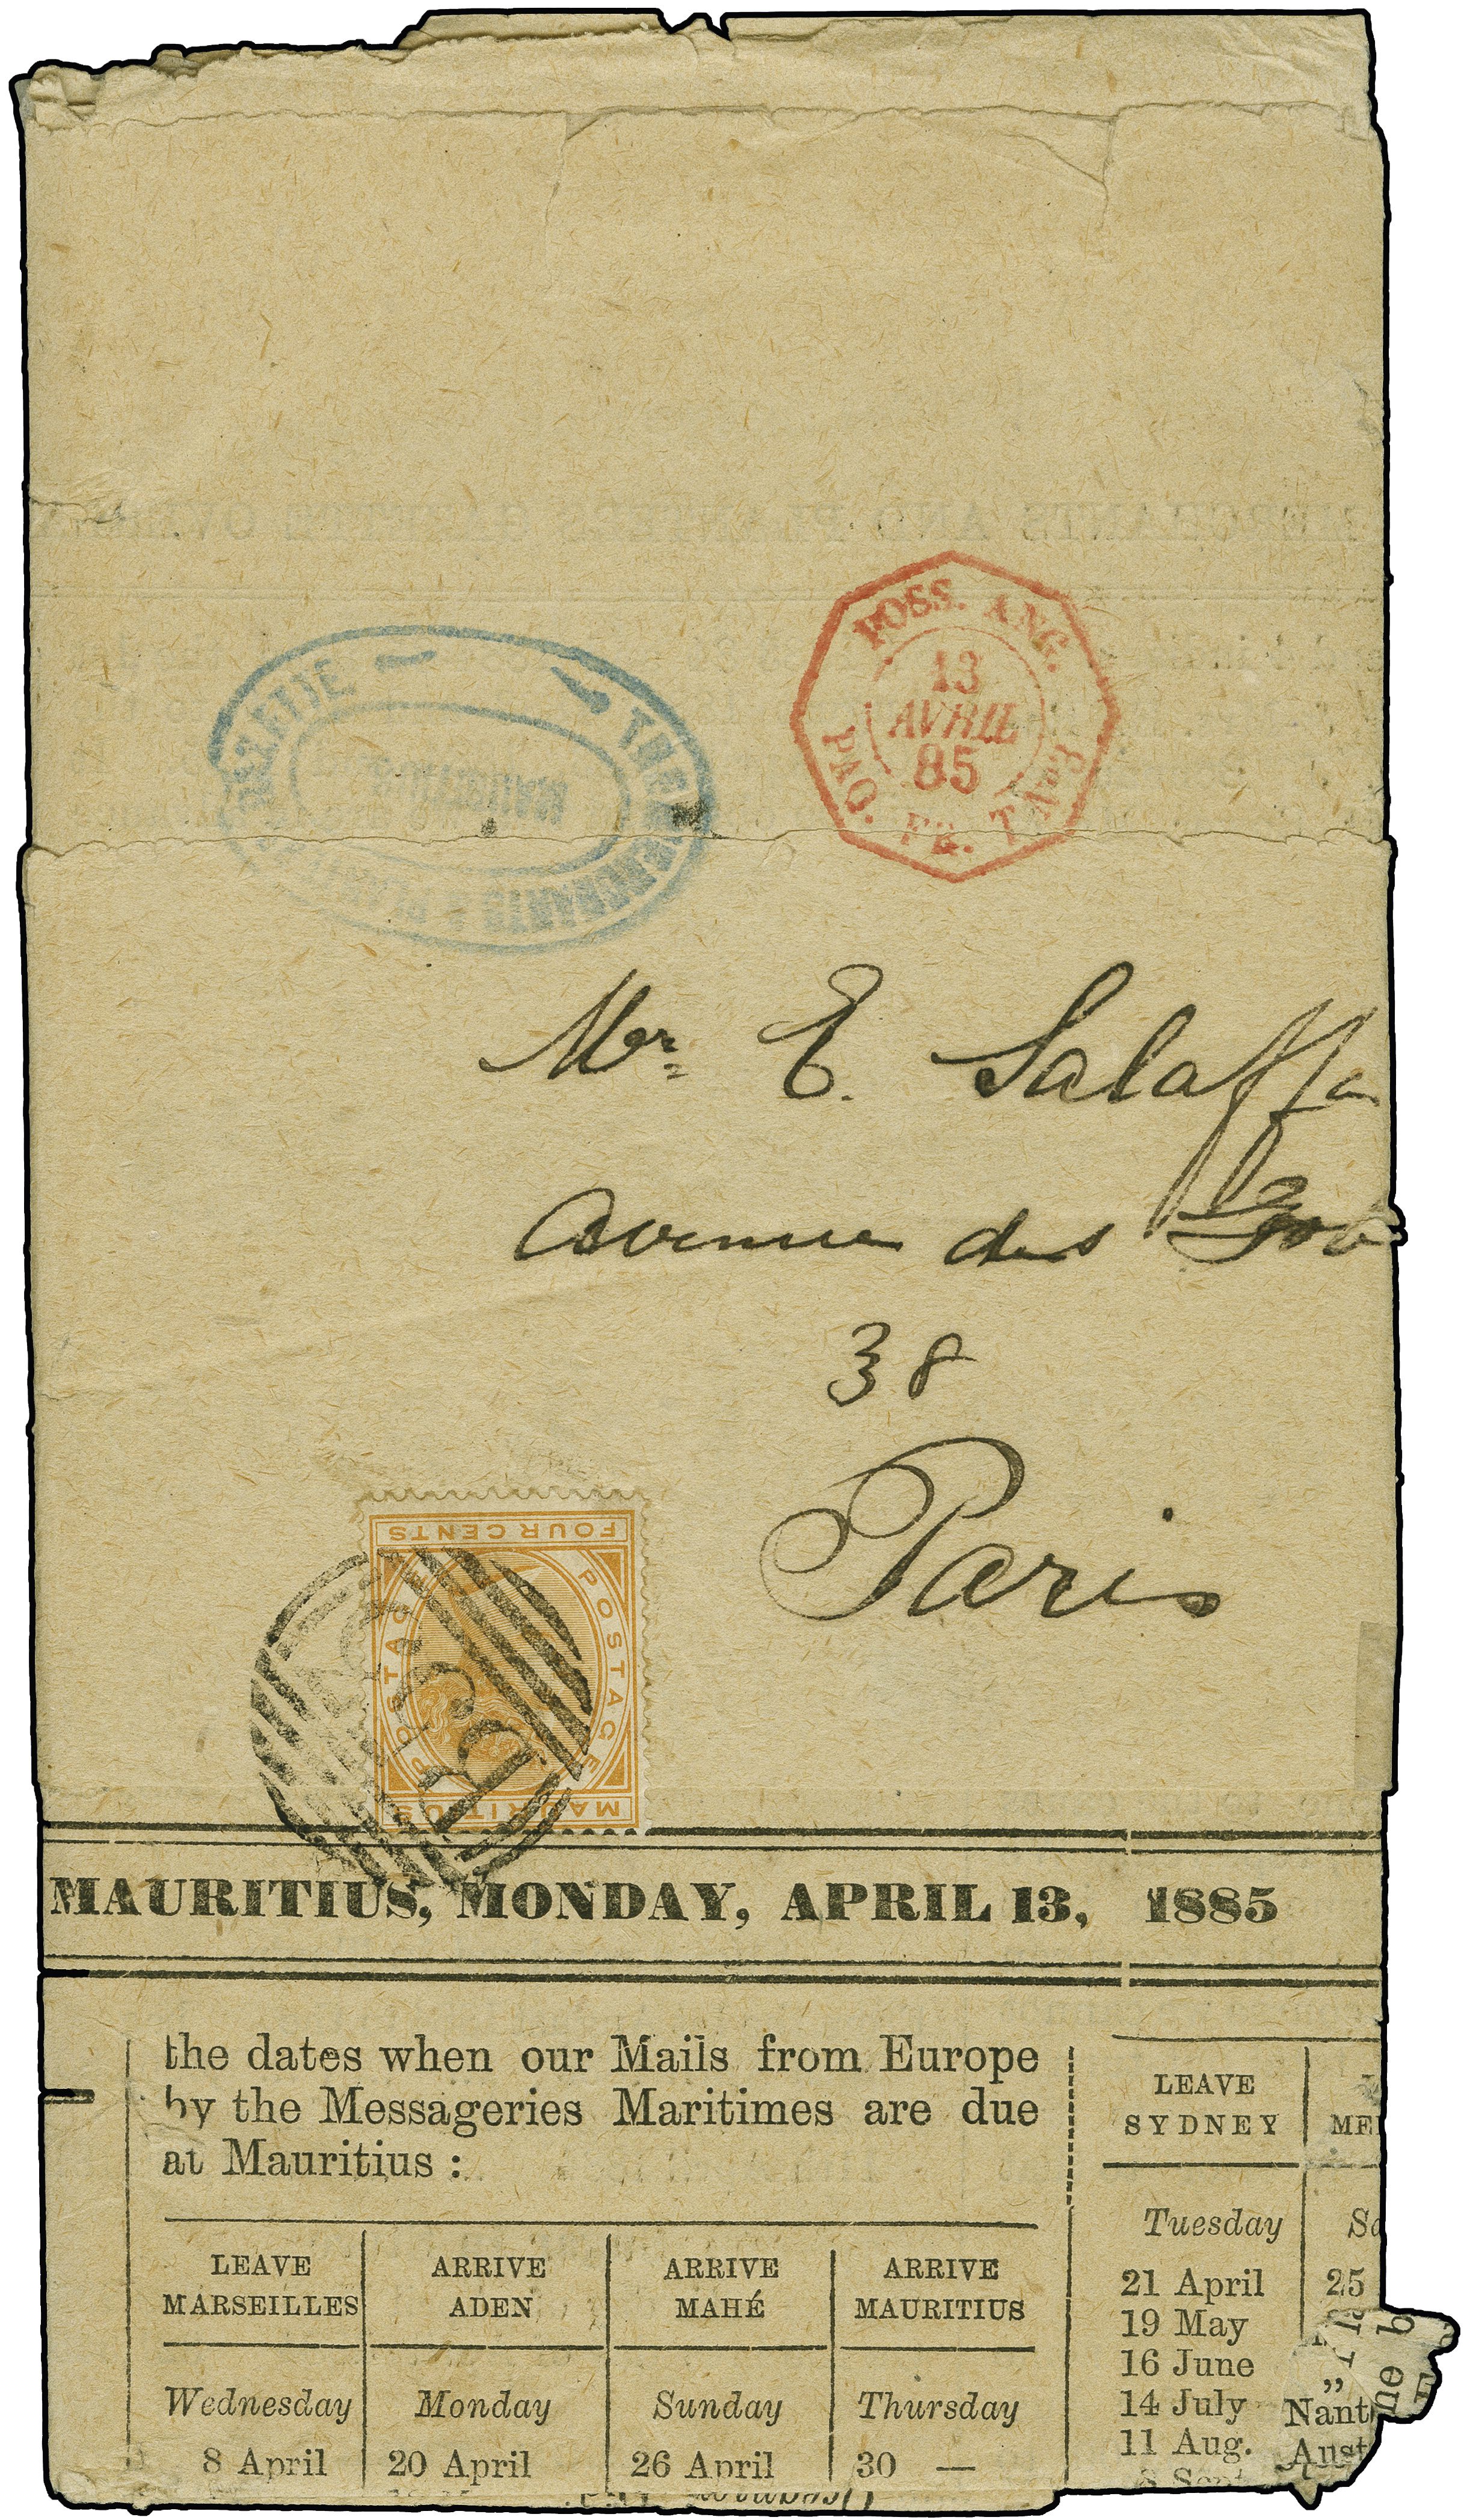 POSS. ANG.
13
AVRIL
85
PAQ. FR. T Nº3
THE MERCHANTS &
MAURITIUS
Mr. E.
Avenue des
38
Paris
FOUR CENTS
POSTAGE
POSTAGE
MAURITIUS
MAURITIUS, MONDAY, APRIL 13, 1885
the dates when our Mails from Europe
by the Messageries Maritimes are due
at Mauritius :
LEAVE MARSEILLES ARRIVE ADEN ARRIVE MAHÉ ARRIVE MAURITIUS
Wednesday Monday Sunday Thursday
8 April 20 April 26 April 30 —
LEAVE
SYDNEY
Tuesday
21 April 25
19 May
16 June
14 July
11 Aug.
8 Sept
„
Nant
Aust
ne b